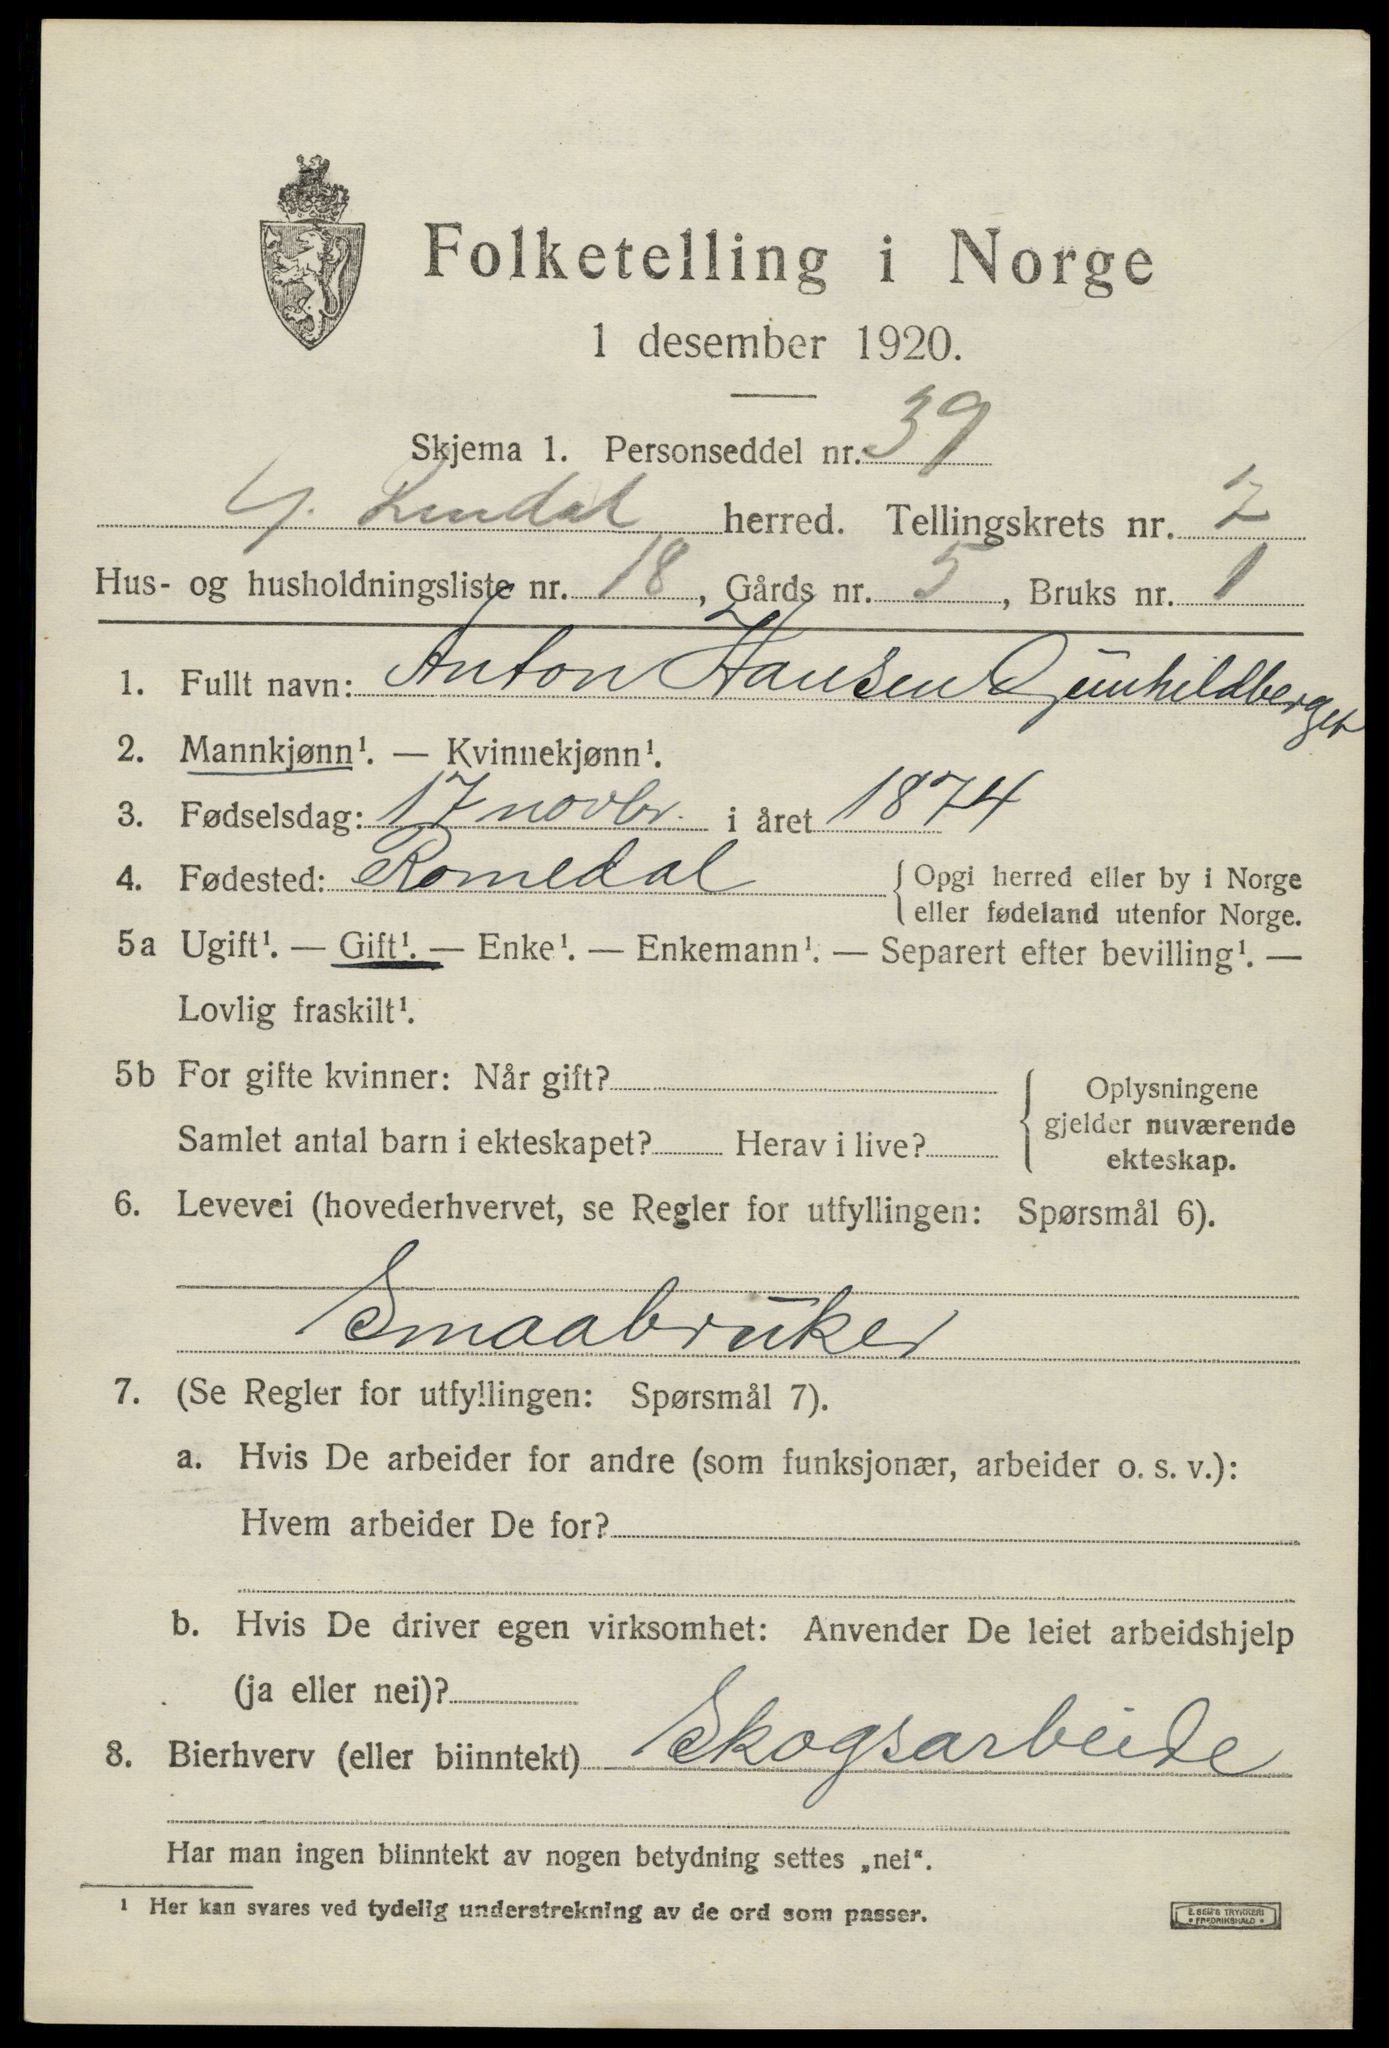 Folketelling i Norge
1 desember 1920.
Skjema 1. Personseddel nr. 39
herred. Tellingskrets nr. 2
Hus- og husholdningsliste nr. 18, Gårds nr. 5, Bruks nr. 1
1. Fullt navn: Anton Hansen Gunhildberget
2. Mannkjønn¹. — Kvinnekjønn¹.
3. Fødselsdag: 17 novbr. i året 1874
4. Fødested: Romedal { Opgi herred eller by i Norge
eller fødeland utenfor Norge.
5a Ugift¹. — Gift¹. — Enke¹. — Enkemann¹. — Separert efter bevilling¹. —
Lovlig fraskilt¹.
5b For gifte kvinner: Når gift?
Samlet antal barn i ekteskapet? Herav i live?
{ Oplysningene
gjelder nuværende
ekteskap.
6. Levevei (hovederhvervet, se Regler for utfyllingen: Spørsmål 6).
Smaabruker
7. (Se Regler for utfyllingen: Spørsmål 7).
a. Hvis De arbeider for andre (som funksjonær, arbeider o. s. v.):
Hvem arbeider De for?
b. Hvis De driver egen virksomhet: Anvender De leiet arbeidshjelp
(ja eller nei)?
8. Bierhverv (eller biinntekt) Skogsarbeide
Har man ingen biinntekt av nogen betydning settes „nei“.
¹ Her kan svares ved tydelig understrekning av de ord som passer.
E. SEM'S TRYKKERI
• FREDRIKSHALD •